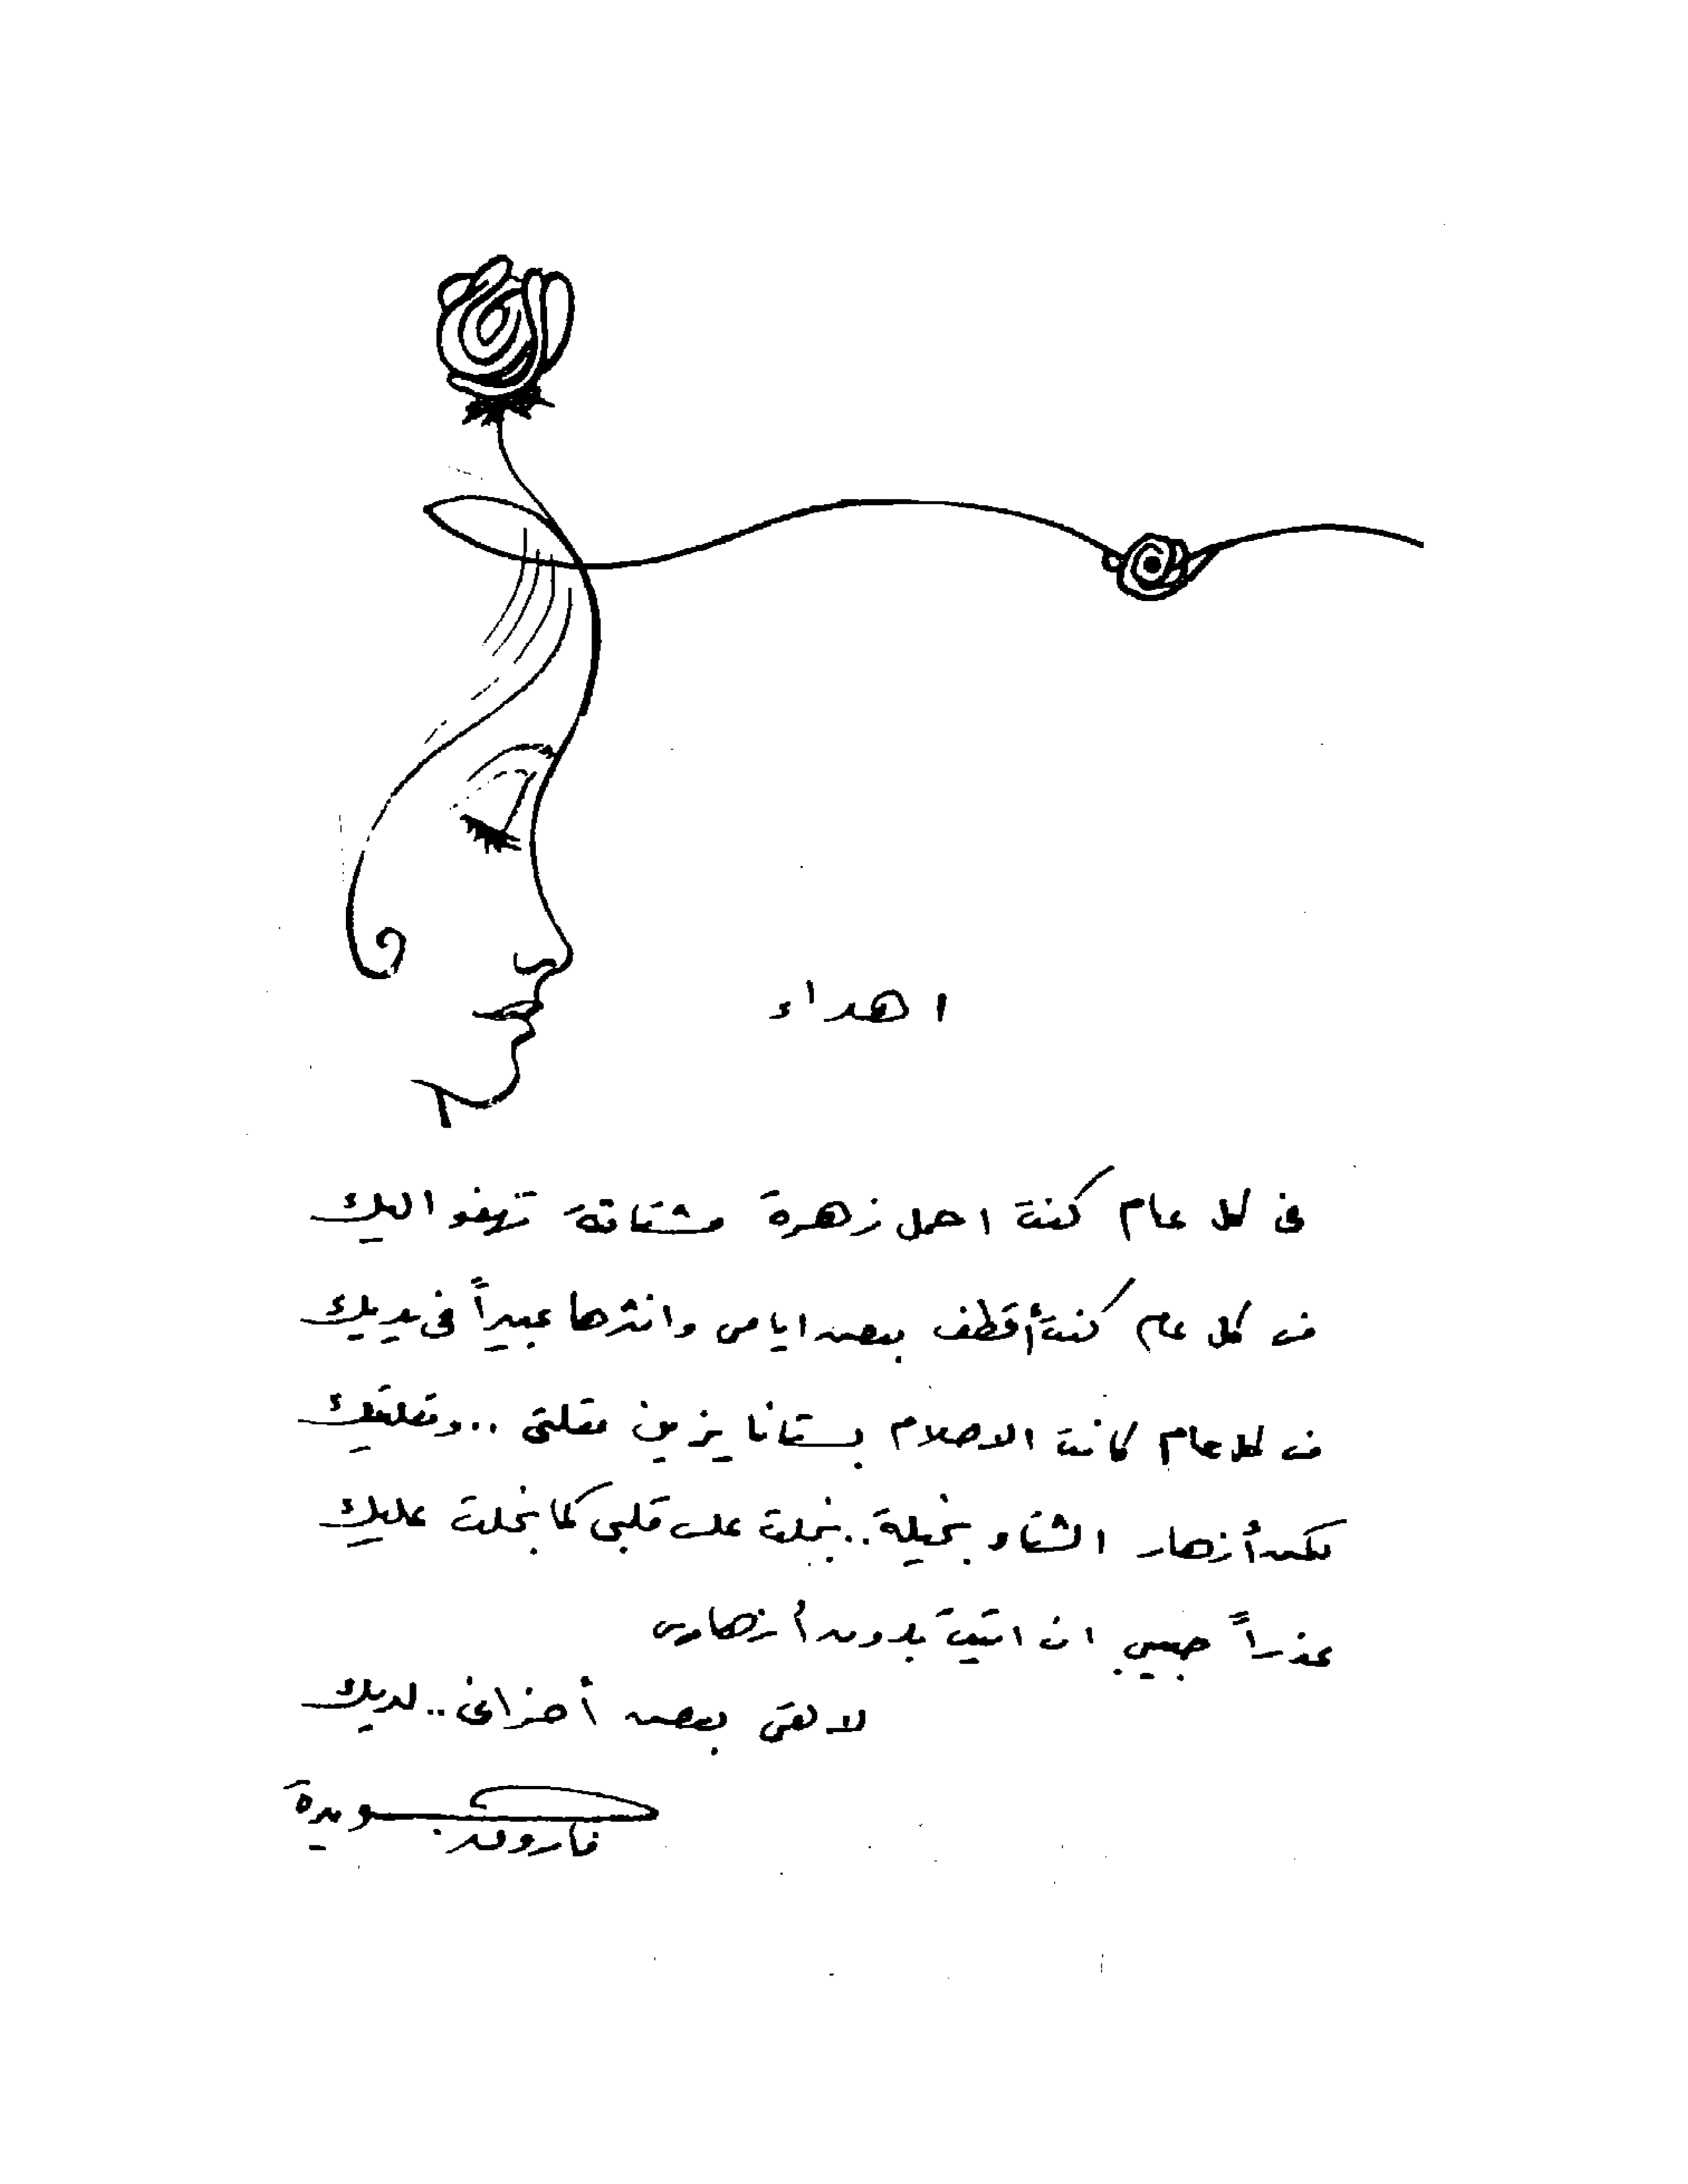 اهداء
فى كل عام كنت احمل زهرة مشتاقة تهفو اليك
فى كل عام كنت أقطف بعض ايامى وانثرها عبيراً فى يديك
فى كل عام كانت الاحلام بستانا يزين مقلتى .. ومقلتيك
لكن أزهار الشتاء بخيلة .. بخلت على قلبى كما بخلت عليك
عذراً حبيبى ان اتيت بدون أزهارى
لالقى بعض أحزانى .. لديك
فاروق جويدة